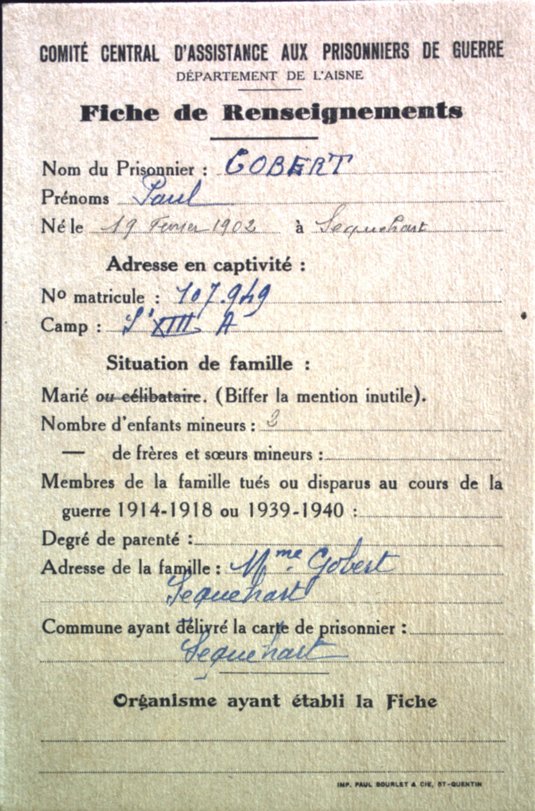 COMITÉ CENTRAL D'ASSISTANCE AUX PRISONNIERS DE GUERRE
DÉPARTEMENT DE L'AISNE
Fiche de Renseignements
Nom du Prisonnier : GOBERT
Prénoms Paul
Né le 19 Fevrier 1902 à Sequehart
Adresse en captivité :
No matricule : 107.949
Camp : St XIII A
Situation de famille :
Marié ou célibataire. (Biffer la mention inutile).
Nombre d'enfants mineurs : 2
— de frères et sœurs mineurs :
Membres de la famille tués ou disparus au cours de la
guerre 1914-1918 ou 1939-1940 :
Degré de parenté :
Adresse de la famille : Mme. Gobert
Sequehart
Commune ayant délivré la carte de prisonnier :
Sequehart
Organisme ayant établi la Fiche
IMP. PAUL BOURLET & CIE, ST-QUENTIN